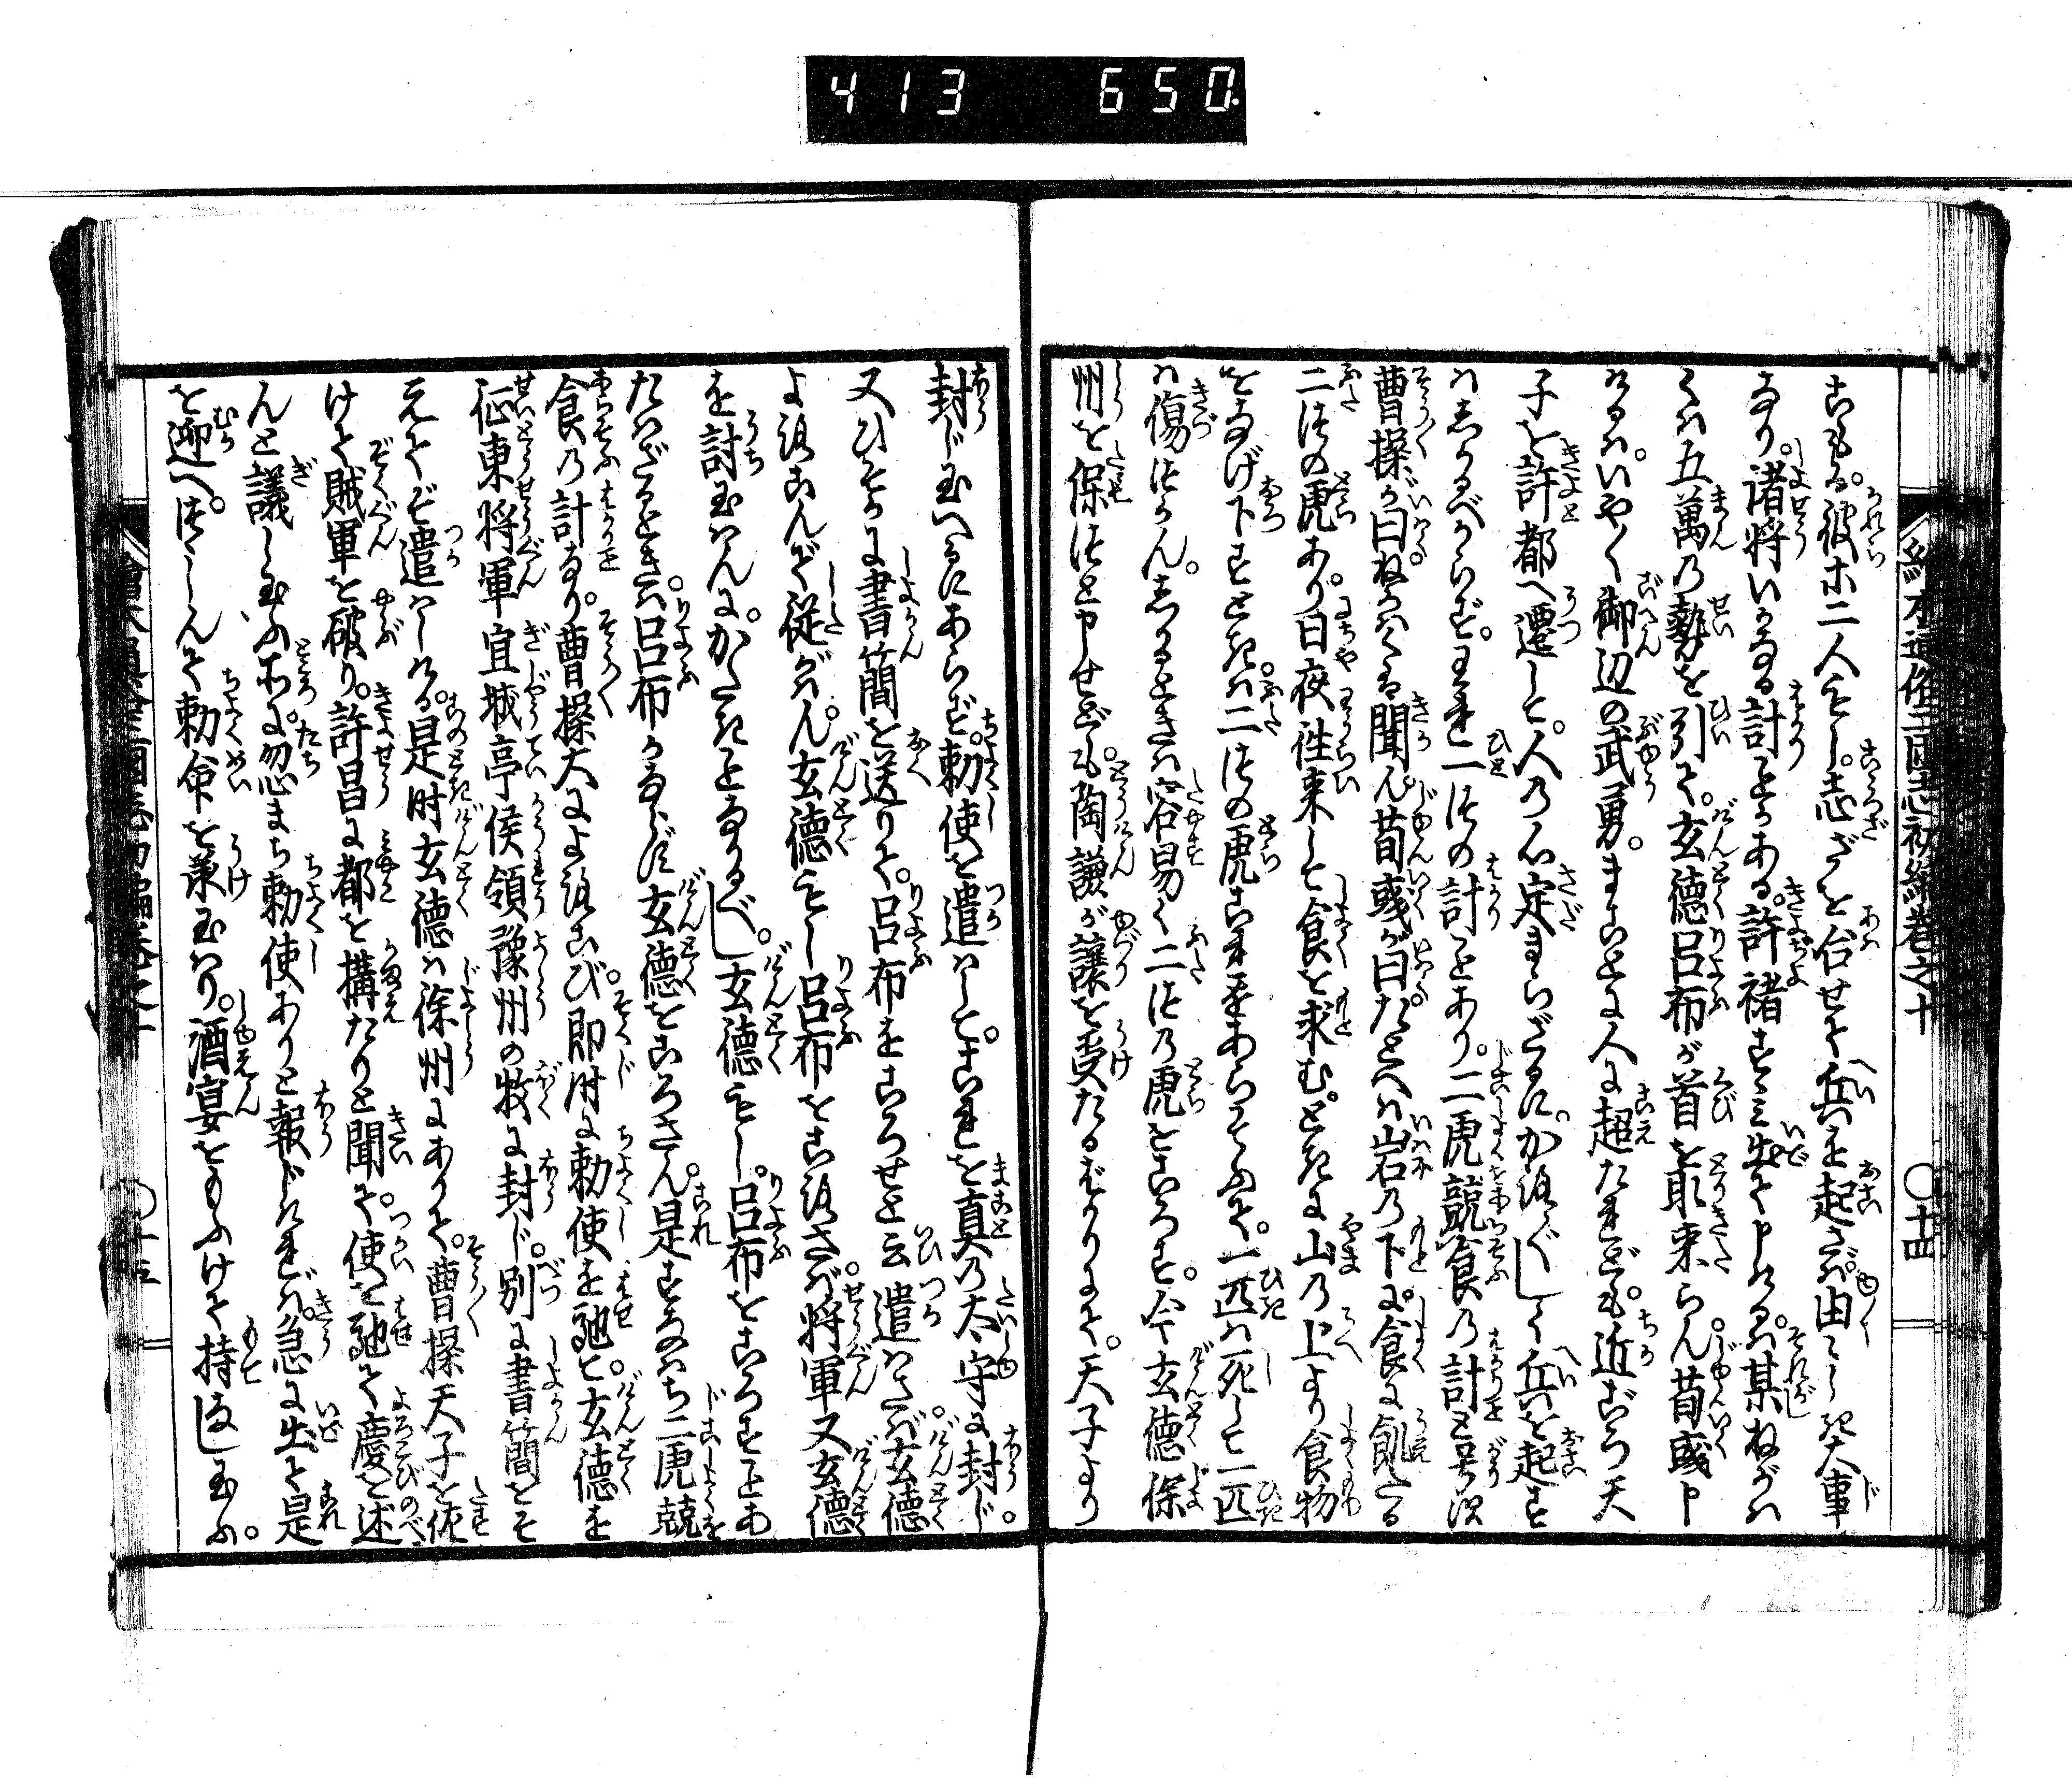 413 650
こもれり。彼ホ二人もし志ざを合せて兵を起さば由〻しき大事
なり。諸将いかなる計ことかある。許褚すゝみ出て申ける。某ねがハ
くハ五萬の勢を引て。玄徳呂布が首を取来らん。荀彧申
けるハ。いやく御辺の武勇。まことに人に超たれども。近ごろ天
子を許都へ遷して。人の心定まらざるに。かろ〴〵しく兵を起す
ハしかるべからず。こゝに一ツの計ことあり。二虎競食の計と号す
曹操が曰。ねがハくハ聞ん。荀彧が曰。たとへハ岩の下に。食に飢たる
二ツの虎あり。日夜往来して食を求む。ときに山の上より食物
をなげ下すときハ。二ツの虎これをあらそふて。一匹ハ死して一匹
ハ傷つかん。しかるときハ容易く二ツの虎をころす。今玄徳徐
州を保つと申せども。陶謙が譲を受たるばかりにて。天子より
封じ玉へるにあらず。勅使を遣ハして。これを真の太守に封じ。
又ひそかに書簡を送りて。呂布をころせと云遣ハさバ。玄徳
よろこんで従がハん。玄徳もし呂布をころさバ。将軍又玄徳
を討玉ハんに。かたきことなかるべし。玄徳もし。呂布をころすことあ
たハざるときハ。呂布かならず玄徳をころさん。是すなハち二虎競
食の計なり。曹操大によろこび。即時に勅使を馳て。玄徳を
征東将軍宜城亭侯領豫州の牧に封じ。別に書簡をそ
えてぞ遣ハしける。是時玄徳ハ徐州にありて。曹操天子を佐
けて賊軍を破り。許昌に都を構たりと聞て。使を馳て慶を述
んと議し玉ふ所に。忽まち勅使ありと報じければ。急に出て是
を迎へ。つゝしんで勅命を承玉ハり。酒宴をもふけて持なし玉ふ。